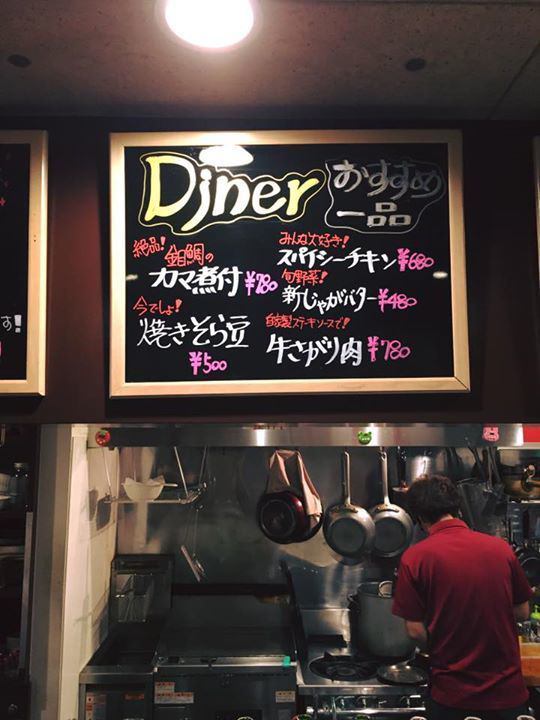 Diner
おすすめ
一品
絶品!金目鯛の
カマ煮付¥780
今でしょ!
焼きそら豆
¥500
みんな大好き!
スパイシーチキン¥680
旬野菜!
新じゃがバター¥480
自家製ステーキソースで!
牛さがり肉¥780
す!